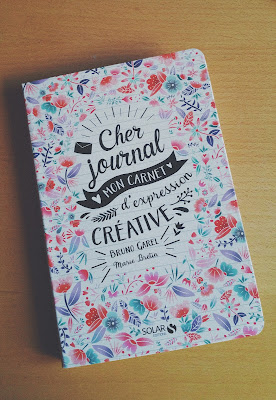 Cher
journal
MON CARNET
d'expression
CRÉATIVE
BRUNO GAREL
Marie Bretin
SOLAR
ÉDITIONS